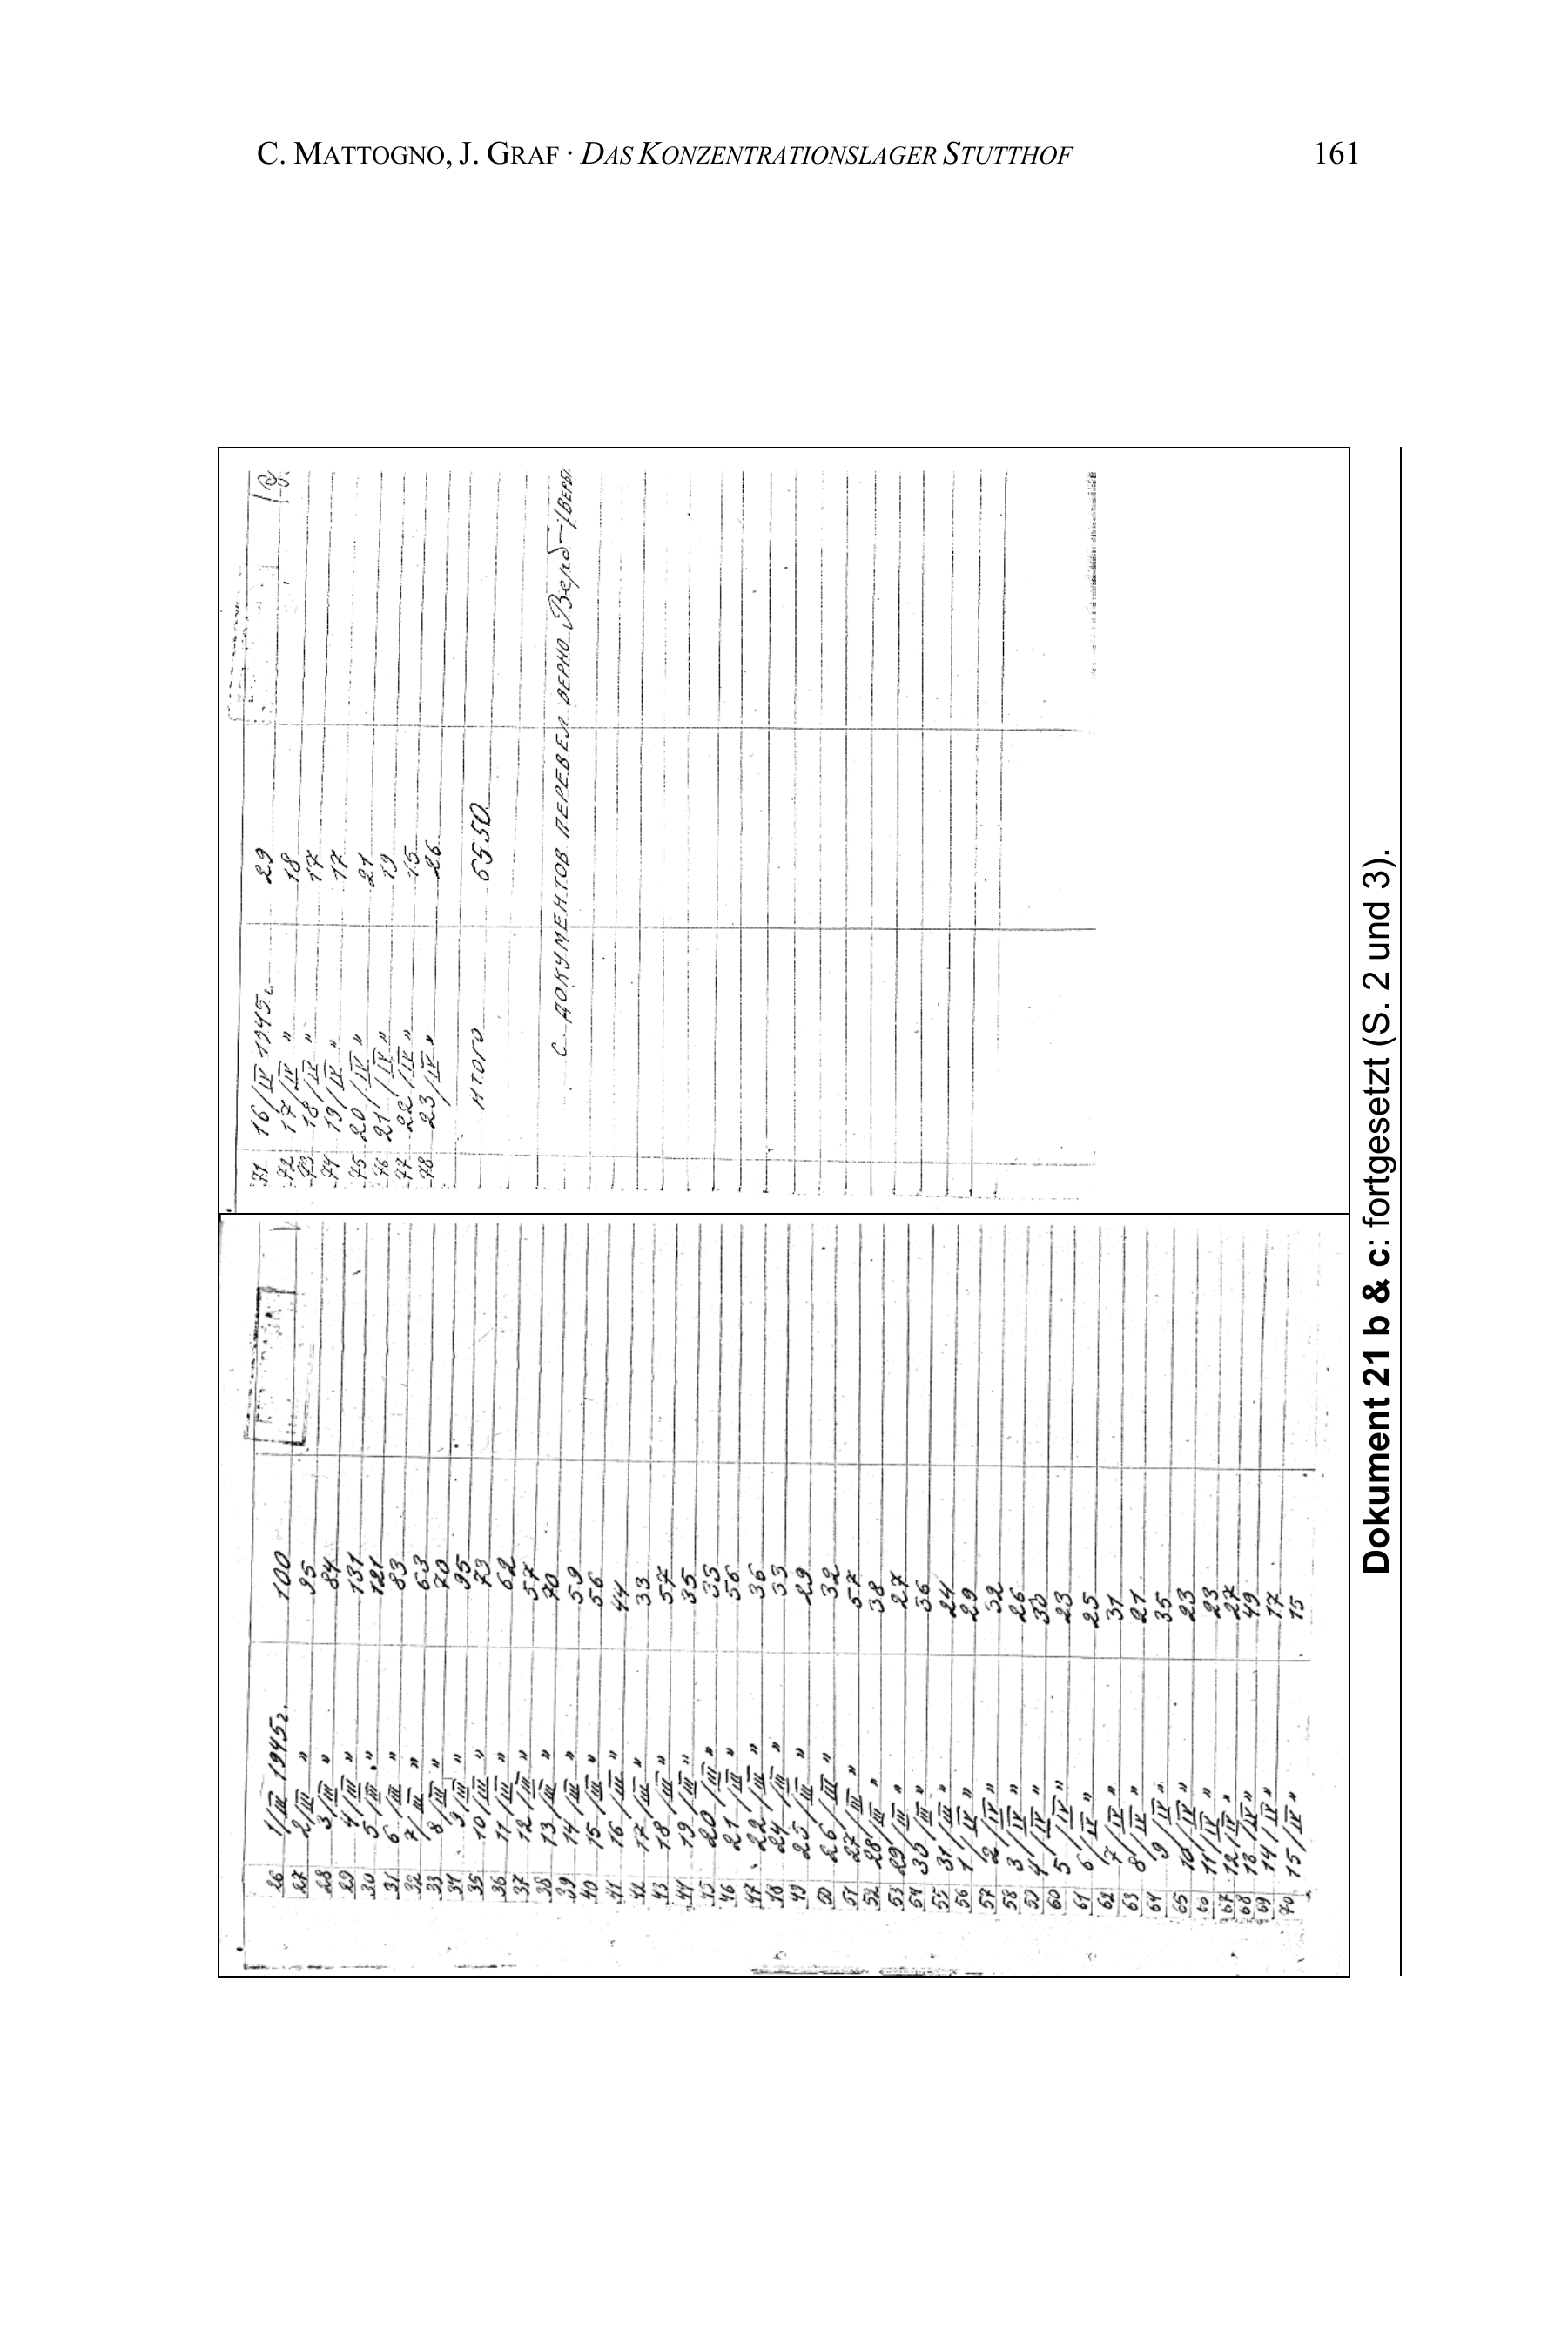 C. MATTOGNO, J. GRAF · DAS KONZENTRATIONSLAGER STUTTHOF 161
26 1/III 1945г. 100
27 2/III " 95
28 3/III " 84
29 4/III " 131
30 5/III " 121
31 6/III " 83
32 7/III " 63
33 8/III " 70
34 9/III " 95
35 10/III " 73
36 11/III " 62
37 12/III " 57
38 13/III " 70
39 14/III " 59
40 15/III " 56
41 16/III " 44
42 17/III " 33
43 18/III " 57
44 19/III " 35
45 20/III " 35
46 21/III " 56
47 22/III " 36
48 24/III " 33
49 25/III " 29
50 26/III " 32
51 27/III " 57
52 28/III " 38
53 29/III " 27
54 30/III " 36
55 31/III " 24
56 1/IV " 29
57 2/IV " 32
58 3/IV " 26
59 4/IV " 30
60 5/IV " 23
61 6/IV " 25
62 7/IV " 31
63 8/IV " 21
64 9/IV " 35
65 10/IV " 23
66 11/IV " 23
67 12/IV " 27
68 13/IV " 49
69 14/IV " 17
70 15/IV " 15
71 16/IV 1945г. 29
72 17/IV " 18
73 18/IV " 17
74 19/IV " 17
75 20/IV " 21
76 21/IV " 19
77 22/IV " 15
78 23/IV " 26
ИТОГО 6550
С ДОКУМЕНТОВ ПЕРЕВЕЛ ВЕРНО Верб /ВЕРБ
Dokument 21 b & c: fortgesetzt (S. 2 und 3).